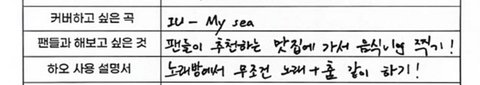 커버하고 싶은 곡 IU - My sea
팬들과 해보고 싶은 것 팬들이 추천하는 맛집에 가서 음식 찍기!
하오 사용 설명서 노래방에서 무조건 노래 + 춤 같이 하기!